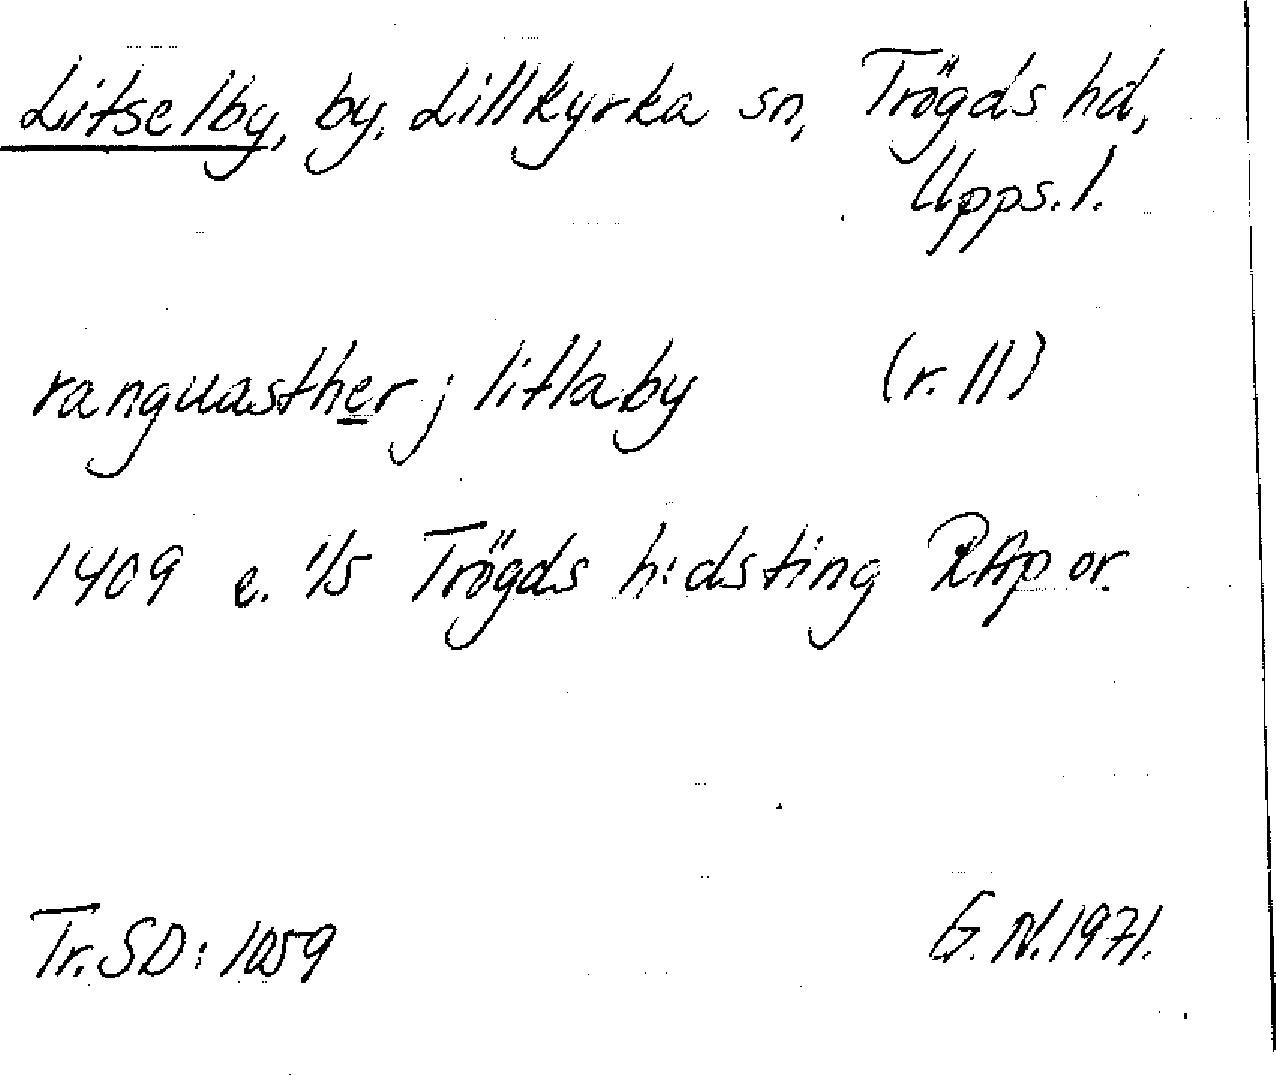 Litselby, by, Lillkyrka sn, Trögds hd,
Upps. l.
ranguasther j litlaby (r. 11)
1409 e. 1/5 Trögds h:dsting RAp or.
Tr. SD: 1059 G. N. 1971.